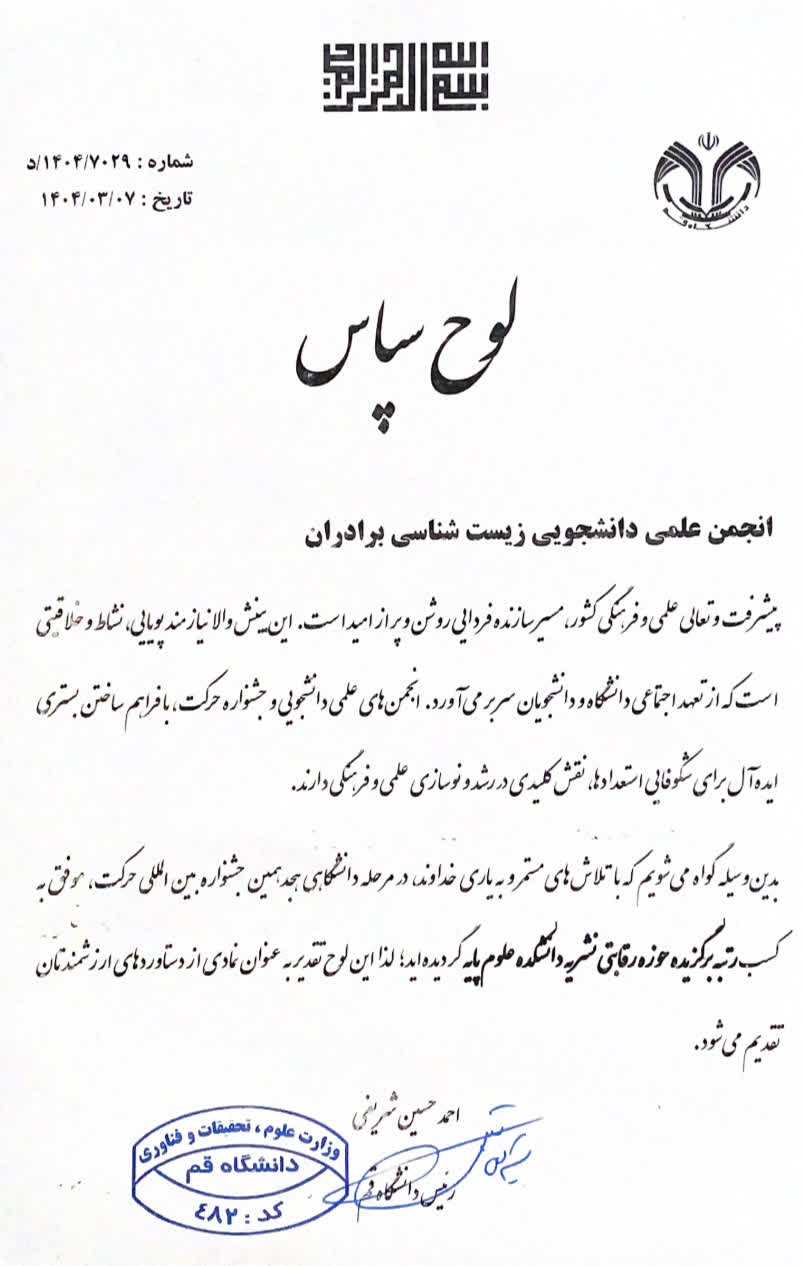 بسم الله الرحمن الرحیم
دانشگاه قم
شماره : ۱۴۰۴/۷۰۲۹/د
تاریخ : ۱۴۰۴/۰۳/۰۷
لوح سپاس
انجمن علمی دانشجویی زیست شناسی برادران
پیشرفت و تعالی علمی و فرهنگی کشور، مسیر سازنده فردایی روشن و پر از امید است. این بینش والا نیازمند پویایی، نشاط و خلاقیتی
است که از تعهد اجتماعی دانشگاه و دانشجویان سر بر می‌آورد. انجمن‌های علمی دانشجویی و جشنواره حرکت، با فراهم ساختن بستری
ایده‌آل برای شکوفایی استعدادها، نقش کلیدی در رشد و نوسازی علمی و فرهنگی دارند.
بدین وسیله گواه می‌شویم که با تلاش‌های مستمر و به یاری خداوند، در مرحله دانشگاهی هجدهمین جشنواره بین المللی حرکت، موفق به
کسب رتبه برگزیده حوزه رقابتی نشریه دانشکده علوم پایه گردیده‌اید؛ لذا این لوح تقدیر به عنوان نمادی از دستاوردهای ارزشمندتان
تقدیم می‌شود.
احمد حسین شریفی
رئیس دانشگاه قم
وزارت علوم ، تحقیقات و فناوری
دانشگاه قم
کد : ٤٨٢